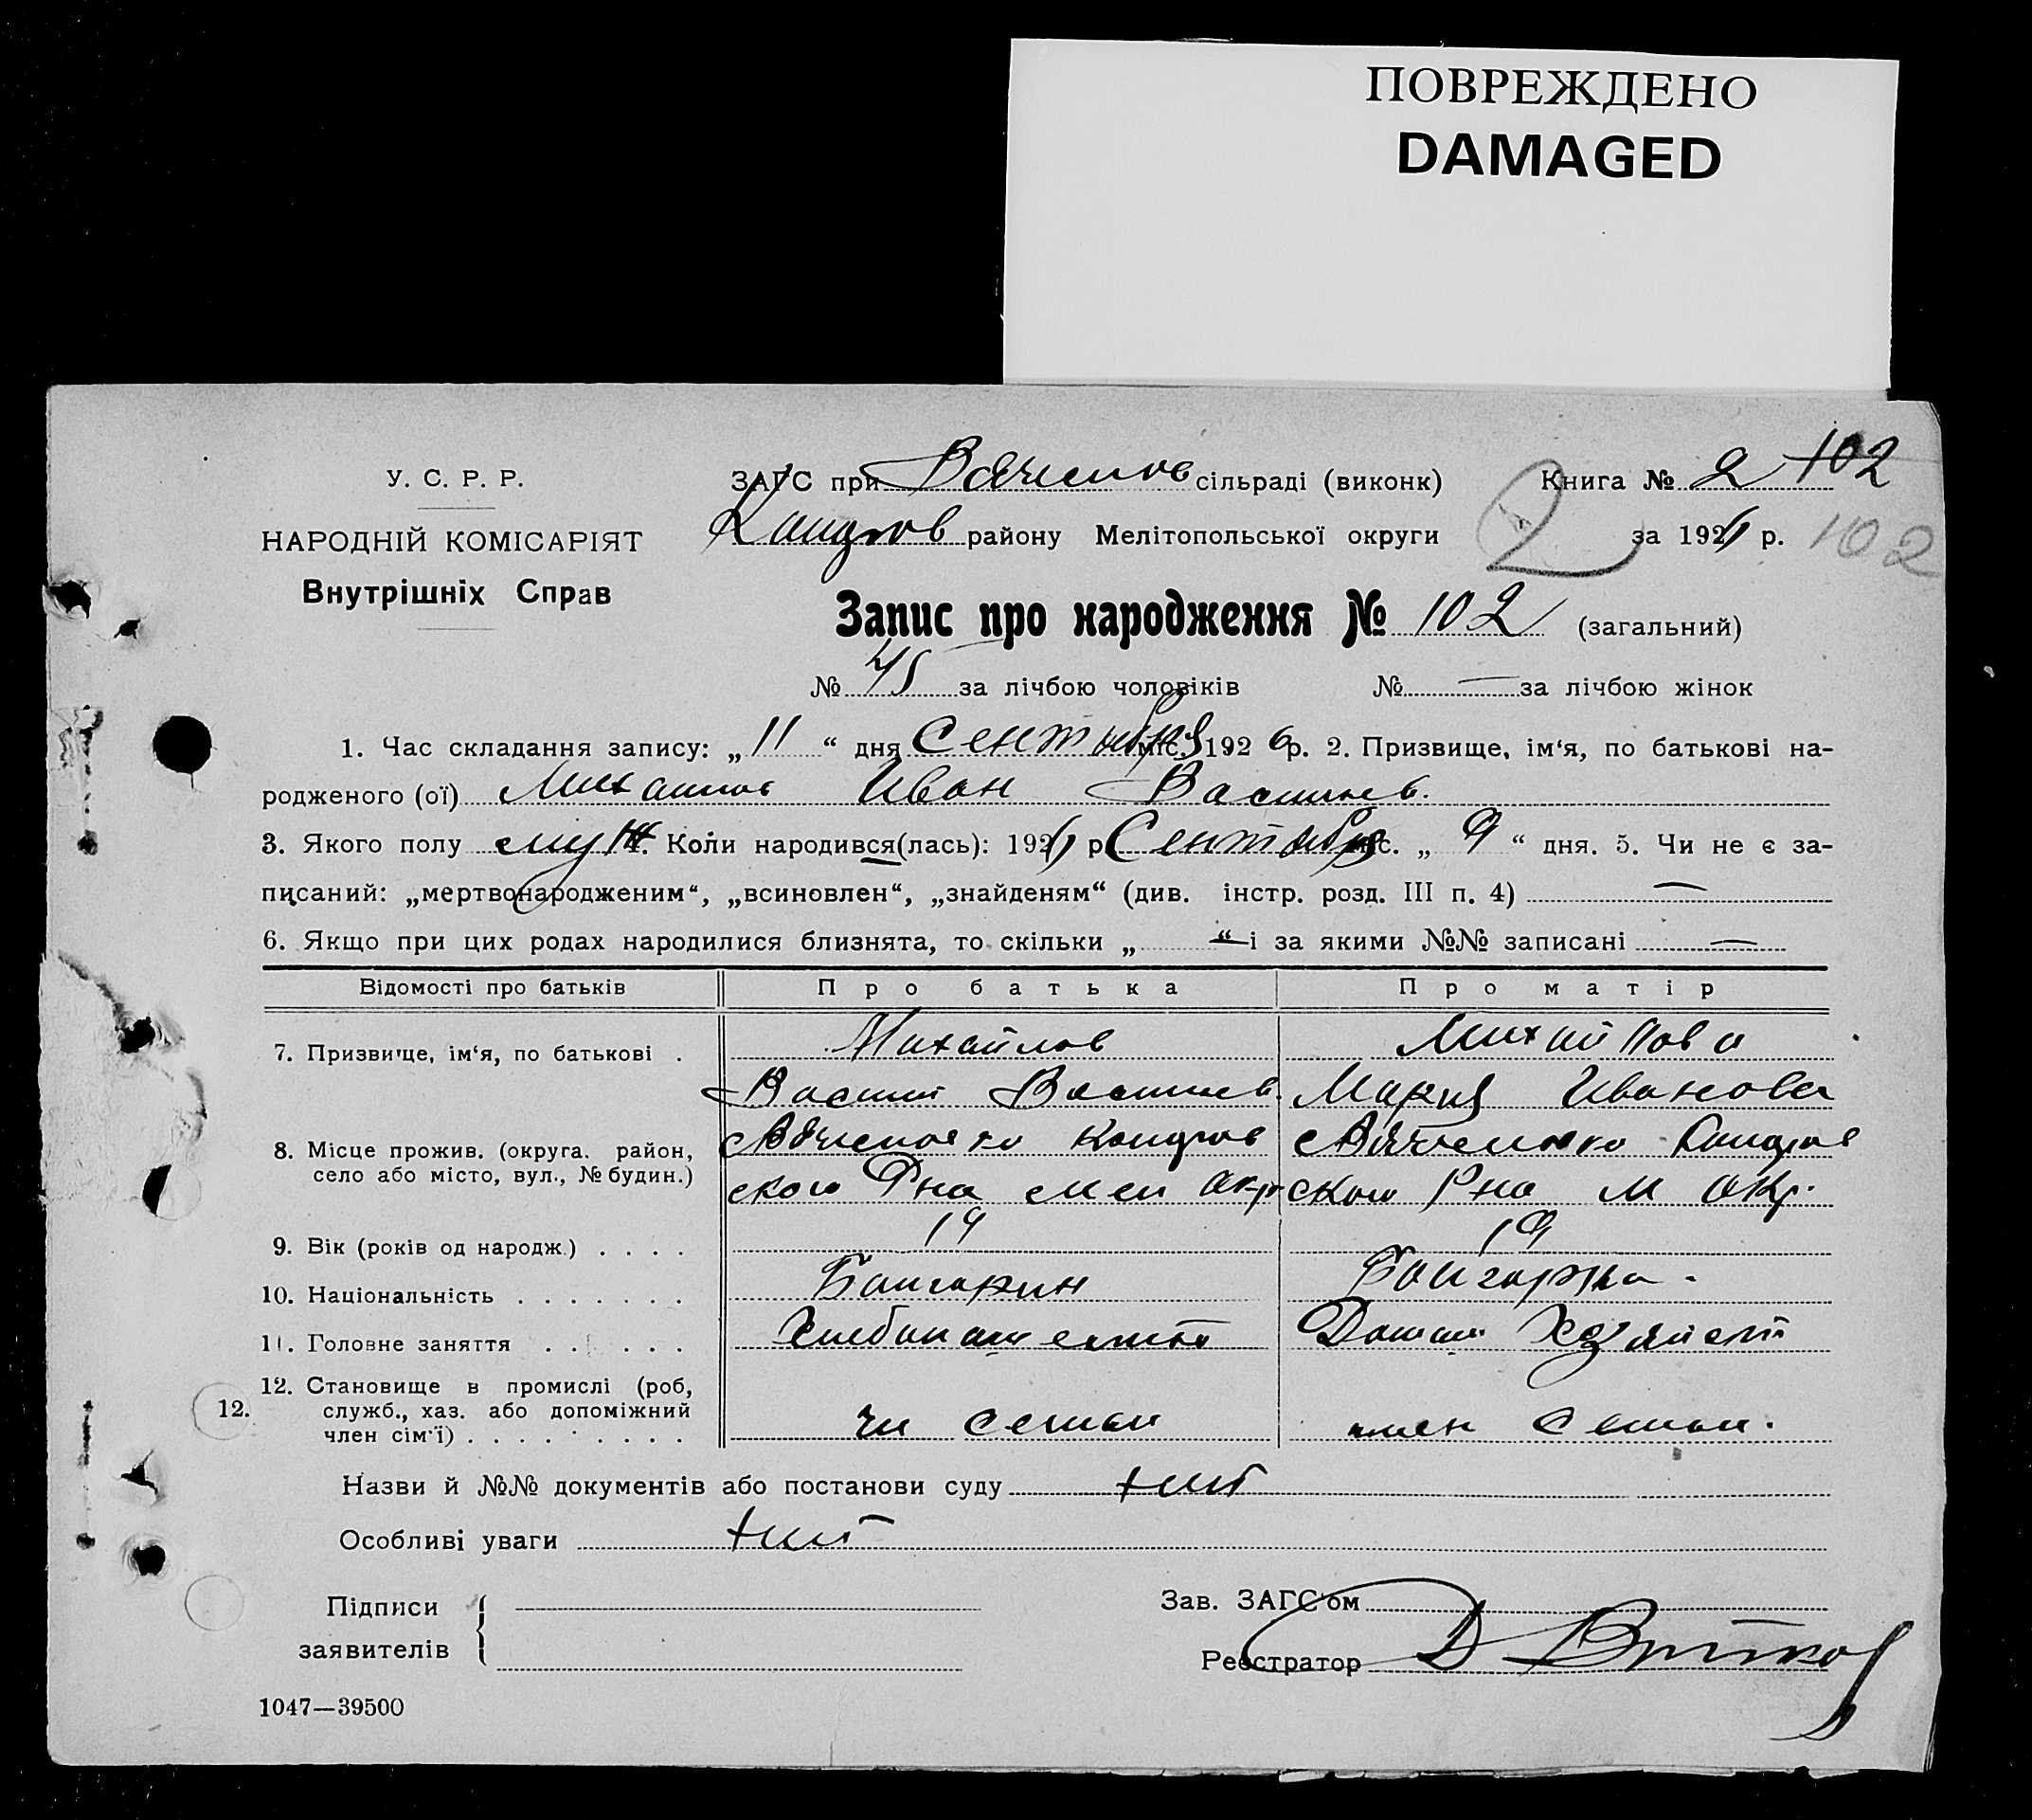 ПОВРЕЖДЕНО
DAMAGED
У. С. Р. Р.
НАРОДНІЙ КОМІСАРІЯТ
Внутрішніх Справ
ЗАГС при сільраді (виконк) Книга № 2 102
району Мелітопольської округи 2 за 1926 р. 102
Запис про народження № 102 (загальний)
№ 45 за лічбою чоловіків № — за лічбою жінок
1. Час складання запису: „ 11 “ дня Сентября міс. 192 6 р. 2. Призвище, ім‘я, по батькові на-
родженого (ої) Михайлов Иван Васильев.
3. Якого полу муж 4. Коли народився(лась): 1926 р Сентября міс. „ 9 “ дня. 5. Чи не є за-
писаний: „мертвонародженим“, „всиновлен“, „знайденям“ (див. інстр. розд. III п. 4) —
6. Якщо при цих родах народилися близнята, то скільки „ — “ і за якими №№ записані —
Відомості про батьків Про батька Про матір
7. Призвище, ім‘я, по батькові . Михайлов Михайлова
Василий Васильев. Мария Иванова
8. Місце прожив. (округа. район,
село або місто, вул., № будин.)
ского Рна Мел Окр ского Рна М Окр.
9. Вік (років од народж.) . . . . 19 19
10. Національність . . . . . . . Болгарин Болгарка.
11. Головне заняття . . . . . . Хлебопашество Домаш Хозяйст
12. Становище в промислі (роб,
12. служб., хаз. або допоміжний
член сім‘ї) . . . . . . . . . чл семьи член семьи.
Назви й №№ документів або постанови суду нет
Особливі уваги нет
Підписи
заявителів
Зав. ЗАГС‘ом
Реєстратор Д
1047—39500